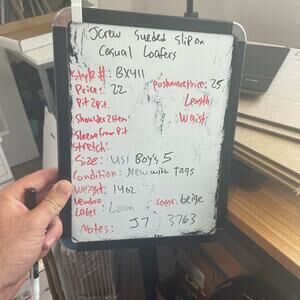 Jcrew Sueded Slip on
Casual Loafers
Style #: BX411
Price: 22 Poshmark price: 25
Pit 2 pit Length
Shoulder 2 Hem Waist
Sleeve from Pit
Stretch:
Size: US | Boy's 5
Condition: New with Tags
Weight: 14oz
Vendoo Label: Loan color: beige
Notes: J7 3763